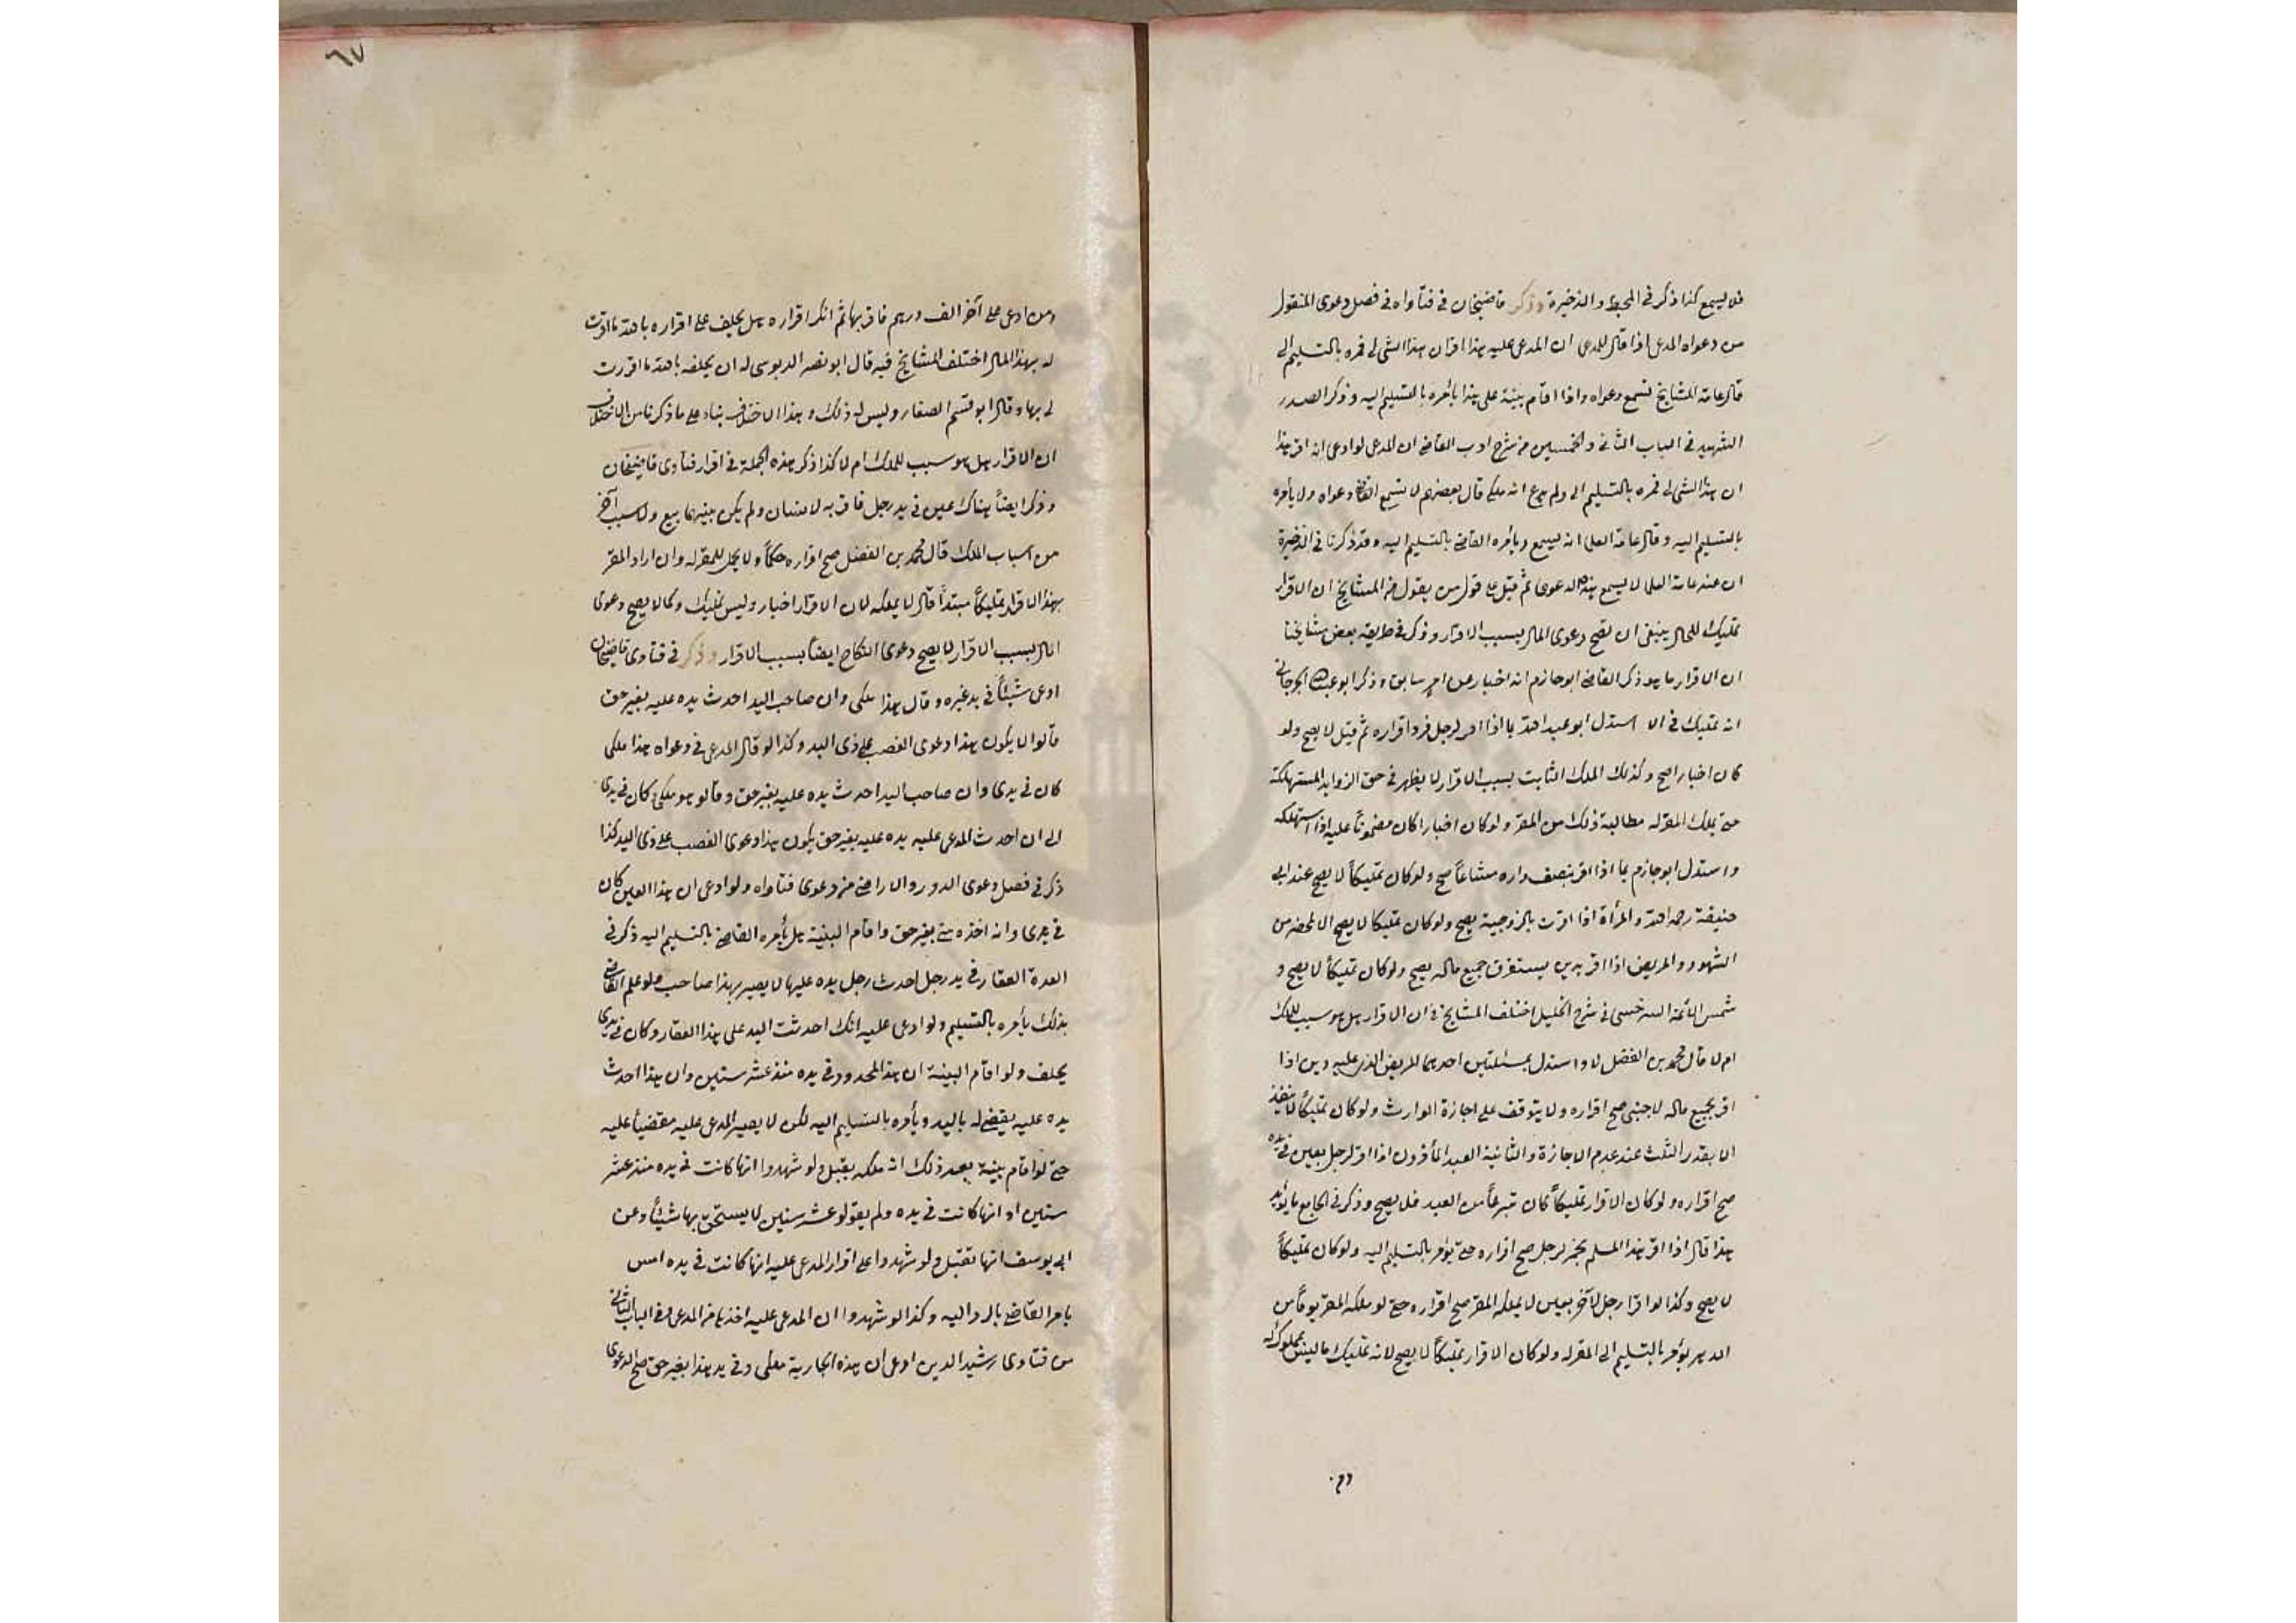 فلا يسمع كذا ذكر في المحيط والذخيرة وذكر قاضيخان في فتاواه في فصل دعوى المنقول
من دعواه المدعى اذا قال المدعى ان المدعى عليه هذا اقر ان هذا الشئ لي فمره بالتسليم الي
قال عامة المشايخ تسمع دعواه واذا اقام بينة على هذا يأمره بالتسليم اليه وذكر الصدر
الشهيد في الباب الثاني والخمسين من شرح ادب القاضي ان المدعى لو ادعى انه اقر هذا
ان هذا الشئ لي فمره بالتسليم الي ولم يدع انه ملكي قال بعضهم لا يسمع القاضي دعواه ولا يأمره
بالتسليم اليه وقال عامة العلما انه يسمع ويأمره القاضي بالتسليم اليه وقد ذكرنا في الذخيرة
ان عند عامة العلما لا يسمع هذه الدعوى ثم قيل على قول من يقول من المشايخ ان الاقرار
تمليك للحال ينبغي ان تصح دعوى المال بسبب الاقرار وذكر في طريقة بعض مشايخنا
ان الاقرار ما هو ذكر القاضي ابو حازم انه اخبار عن امر سابق وذكر ابو عبد الله الجرجاني
انه تمليك في الا استدل ابو عبد الله بما اذا اقر لرجل فرد اقراره ثم قبل لا يصح ولو
كان اخبارا صح وكذلك الملك الثابت بسبب الاقرار لا يظهر في حق الزوايد المستهلكة
حتى يملك المقر له مطالبة ذلك من المقر ولو كان اخبارا كان مضمونا عليه اذا استهلكه
واستدل ابو حازم بما اذا اقر بنصف داره مشاعاً صح ولو كان تمليكاً لا يصح عند ابي
حنيفة رحمه الله والمرأة اذا اقرت بالزوجية يصح ولو كان تمليكا لا يصح الا بمحضر من
الشهود والمريض اذا اقر بدين يستغرق جميع ماله يصح ولو كان تمليكاً لا يصح و
شمس الائمة السرخسي في شرح الحيل اختلف المشايخ في ان الاقرار هل هو سبب للملك
ام لا قال محمد بن الفضل لا واستدل بمسئلتين احديهما المريض الذي عليه دين اذا
اقر بجميع ماله لاجنبي صح اقراره ولا يتوقف على اجازة الوارث ولو كان تمليكاً لا ينفذ
الا بقدر الثلث عند عدم الاجازة والثانية العبد المأذون اذا اقر لرجل بعين في يده
صح اقراره ولو كان الاقرار تمليكاً كان تبرعاً من العبد فلا يصح وذكر في الجامع ما يؤيد
هذا قال اذا اقر هذا المسلم بخمر لرجل صح اقراره حتى يؤمر بالتسليم اليه ولو كان تمليكاً
لا يصح وكذا لو اقر رجل لآخر بعين لا يملكه المقر صح اقراره حتى لو ملكه المقر يوماً من
الدهر يؤمر بالتسليم الى المقر له ولو كان الاقرار تمليكاً لا يصح لانه تمليك ما ليس بمملوك له
ومن
ومن ادعى على آخر الف درهم فاقر بها ثم انكر اقراره هل يحلف على اقراره بالله ما اقرت
له بهذا المال اختلف المشايخ فيه قال ابو نصر الدبوسي له ان يحلفه بالله ما اقررت
لي بها وقال ابو قسم الصفار وليس له ذلك وهذا الاختلاف بناء على ما ذكرنا من الاختلاف
ان الاقرار هل هو سبب للملك ام لا كذا ذكر هذه الجملة في اقرار فتاوى قاضيخان
وذكر ايضاً هناك عين في يد رجل فاقر به لانسان ولم يكن بينهما بيع ولا سبب آخر
من اسباب الملك قال محمد بن الفضل صح اقراره حكماً ولا يحل للمقر له وان اراد المقر
بهذا الاقرار تمليكاً مبتدأ قال لا يملكه لان الاقرار اخبار وليس تمليك وكما لا يصح دعوى
المال بسبب الاقرار لا يصح دعوى النكاح ايضاً بسبب الاقرار وذكر في فتاوى قاضيخان
ادعى شيئاً في يد غيره وقال هذا ملكي وان صاحب اليد احدث يده عليه بغير حق
قالوا لا يكون هذا دعوى الغصب على ذى اليد وكذا لو قال المدعى في دعواه هذا ملكي
كان في يدى وان صاحب اليد احدث يده عليه بغير حق وقالو هو ملكي كان في يدى
الى ان احدث المدعى عليه يده عليه بغير حق يكون هذا دعوى الغصب على ذى اليد كذا
ذكر في فصل دعوى الدور والاراضي من دعوى فتاواه ولو ادعى ان هذا العين كان
في يدى وانه اخذه مني بغير حق واقام البينة هل يأمره القاضي بالتسليم اليه ذكر في
العدة العقار في يد رجل احدث رجل يده عليها لا يصير بهذا صاحب ولو علم القاضي
بذلك يأمره بالتسليم ولو ادعى عليه انك احدثت اليد على هذا العقار وكان في يدى
يحلف ولو اقام البينة ان هذا المحدود في يده منذ عشر سنين وان هذا احدث
يده عليه يقضي له باليد ويأمره بالتسليم اليه لكن لا يصير المدعى عليه مقضياً عليه
حتى لو اقام بينة بعد ذلك انه ملكه يقبل ولو شهدوا انها كانت في يده منذ عشر
سنين او انها كانت في يده ولم يقولو عشر سنين لا يستحق بها شيئاً وعن
ابي يوسف انها تقبل ولو شهدوا على اقرار المدعى عليه انها كانت في يده امس
يامر القاضي بالرد اليه وكذا لو شهدوا ان المدعى عليه اخذها من المدعى وفي الباب الثاني
من فتاوى رشيد الدين ادعى ان هذه الجارية ملكي وفي يد هذا بغير حق صح الدعوى